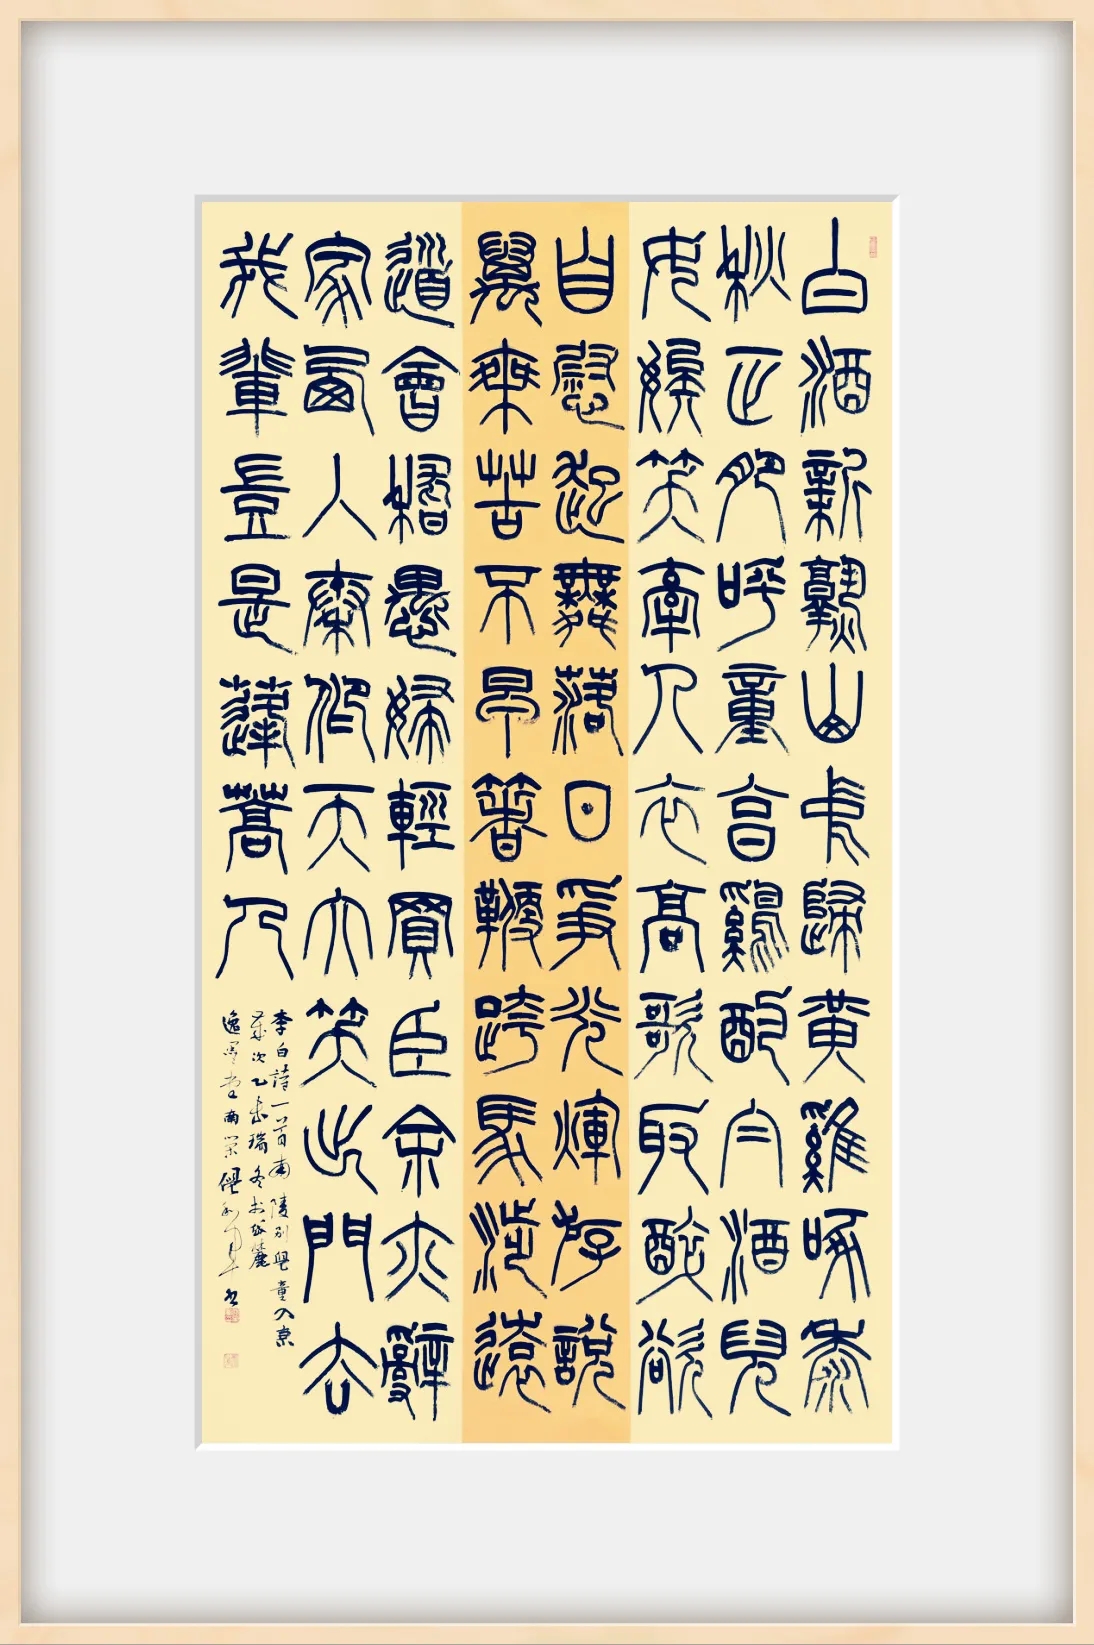 白酒新熟山中歸黃雞啄黍
秋正肥呼童亨鷄酌白酒兒
女嬉笑牽人衣高歌取醉欲
自慰起舞落日爭光輝游說
萬乘苦不早著鞭跨馬涉遠
道會稽愚婦輕買臣余亦辭
家西入秦仰天大笑出門去
我輩豈是蓬蒿人
李白詩一首南陵別兒童入京
歲次乙未瑞冬於岳麓
逸墨堂南